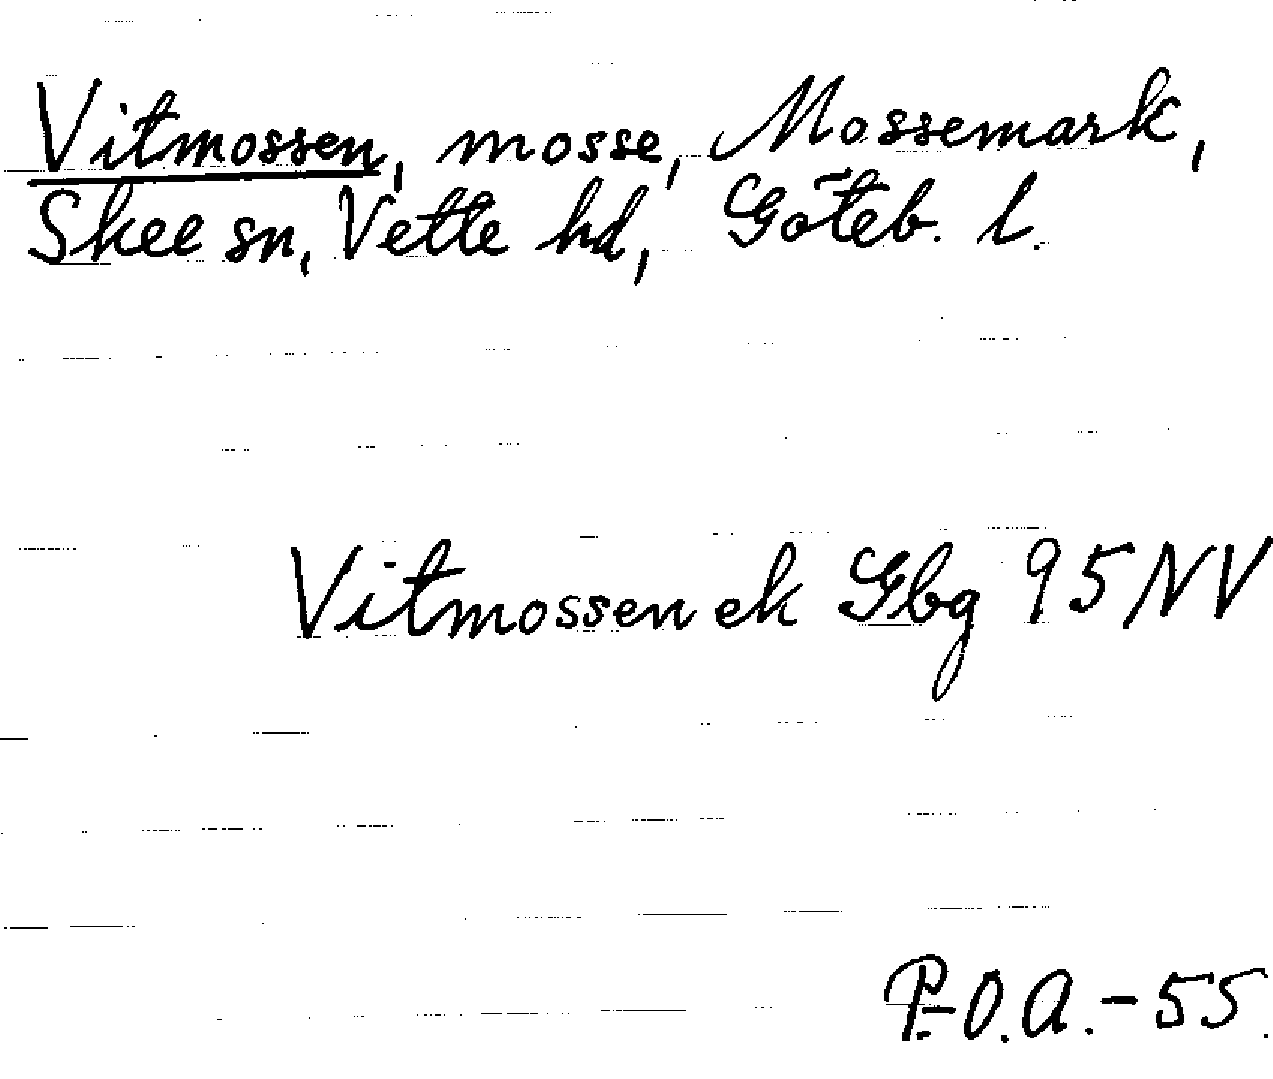 Vitmossen, mosse, Mossemark,
Skee sn, Vette hd, Göteb. l.
Vitmossen ek Gbg 95 NV
P.-O.A.-55.